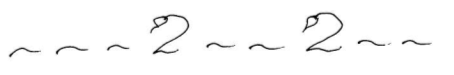 ~ ~ ~ 2 ~ ~ 2 ~ ~